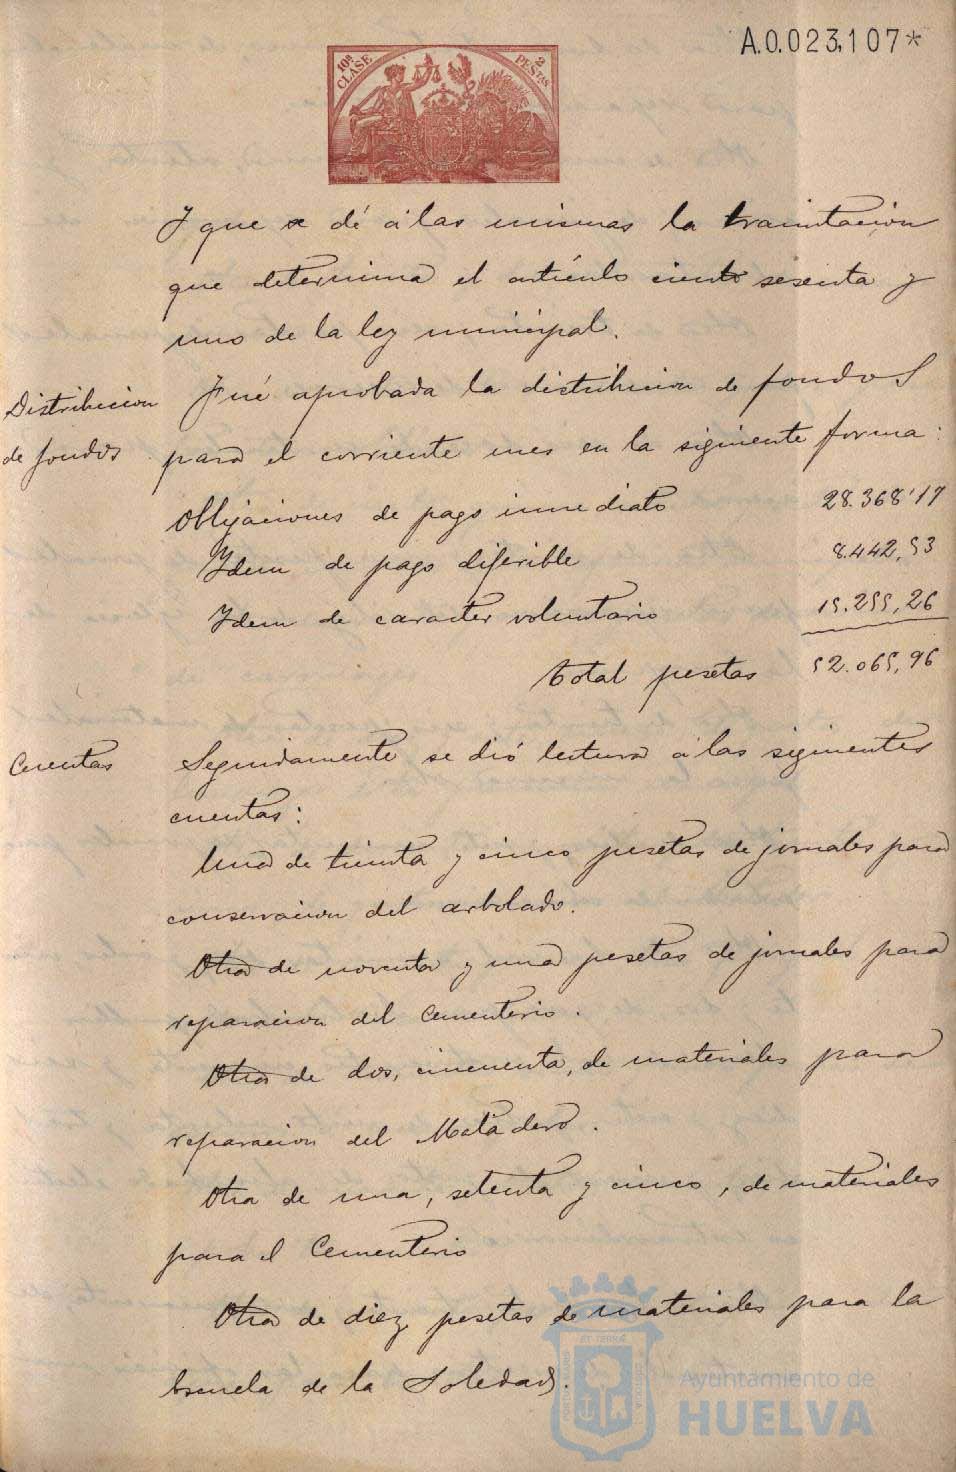 A.0.023,107*
10ª CLASE 2 PESTAS
Y que se dé á las mismas la tramitación
que determina el artículo ciento sesenta y
uno de la ley municipal.
Distribucion
de fondos
Fué aprobada la distribucion de fondos
para el corriente mes en la siguiente forma:
Obligaciones de pago inmediato 28.368'17
Idem de pago diferible 8.442,53
Idem de caracter voluntario 15.255,26
Total pesetas 52.065,96
Cuentas
Seguidamente se dió lectura á las siguientes
cuentas:
Una de treinta y cinco pesetas de jornales para
conservacion del arbolado.
Otra de noventa y una pesetas de jornales para
reparacion del Cementerio.
Otra de dos, cincuenta, de materiales para
reparacion del Matadero.
Otra de una, setenta y cinco, de materiales
para el Cementerio
Otra de diez pesetas de materiales para la
Escuela de la Soledad.
Ayuntamiento de
HUELVA